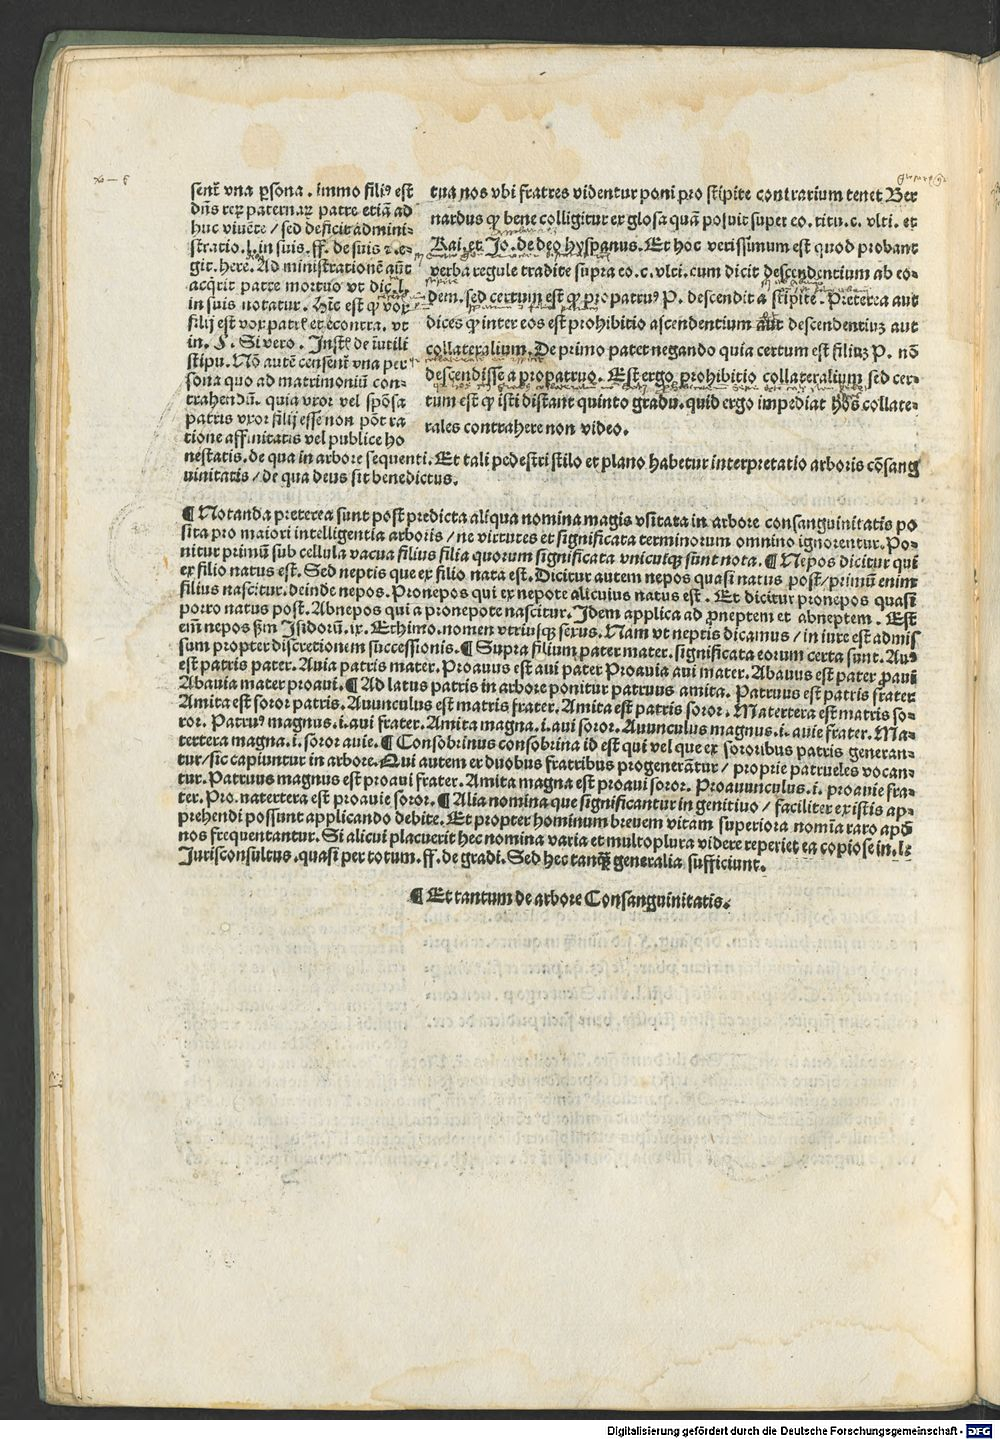 sent̃ vna ꝑsona . immo filiꝰ est
dñs reꝝ paternaꝝ patre etiã ad
huc viuẽte / sed deficit admini-
stratio.l.in suis.ff. de suis ⁊.e-
git. here. Ad ministrationẽ aũt
acq̃rit patre mortuo vt dic.l.
in suis notatur. Hĩc est ꝙ vox
filij est vox patr̃ et econtra. vt
in. §. Si vero. Inst̃ de ĩutili
stipu. Nõ autẽ censent̃ vna per
sona quo ad matrimoniũ con-
trahendũ. quia vxor vel spõsa
patris vxor filij esse non põt ra
tione affinitatis vel publice ho
tua nos vbi fratres videntur poni pro stipite contrarium tenet Ber
nardus ꝙ bene colligitur ex glosa quã posuit super eo. titu. c. vlti. et
Rai. et Jo. de deo hyspanus. Et hoc verissimum est quod probant
verba regule tradite supra eo. c. vlci. cum dicit descendentium ab eo-
dem. sed certum est ꝙ propatruꝰ P. descendit a stipite. Preterea aut
dices ꝙ inter eos est prohibitio ascendentium aut descendentiuꝫ aut
collateralium. De primo patet negando quia certum est filiuꝫ P. nõ
descendisse a propatruo. Est ergo prohibitio collateralium sed cer-
tum est ꝙ isti distant quinto gradu. quid ergo impediat hos collate-
rales contrahere non video.
nestatis. de qua in arbore sequenti. Et tali pedestri stilo et plano habetur interpretatio arboris cõsang
uinitatis / de qua deus sit benedictus.
¶ Notanda preterea sunt post predicta aliqua nomina magis vsitata in arbore consanguinitatis po
sita pro maiori intelligentia arboris / ne virtutes et significata terminorum omnino ignorentur. Po-
nitur primũ sub cellula vacua filius filia quorum significata vnicuiqꝫ sunt nota. ¶ Nepos dicitur qui
ex filio natus est. Sed neptis que ex filio nata est. Dicitur autem nepos quasi natus post / primũ enim
filius nascitur. deinde nepos. Pronepos qui ex nepote alicuius natus est . Et dicitur pronepos quasi
porro natus post. Abnepos qui a pronepote nascitur. Idem applica ad ꝓneptem et abneptem . Est
em̃ nepos ẜm Isidorũ. ix. Ethimo. nomen vtriusqꝫ sexus. Nam vt neptis dicamus / in iure est admis
sum propter discretionem successionis. ¶ Supra filium pater mater. significata eorum certa sunt. Auꝰ
est patris pater. Auia patris mater. Proauus est aui pater Proauia aui mater. Abauus est pater ꝓaui
Abauia mater proaui. ¶ Ad latus patris in arbore ponitur patruus amita. Patruus est patris frater
Amita est soror patris. Auunculus est matris frater. Amita est patris soror . Matertera est matris so-
ror. Patruꝰ magnus.i.aui frater. Amita magna.i.aui soror. Auunculus magnus.i.auie frater. Ma-
tertera magna.i.soror auie. ¶ Consobrinus consobrina id est qui vel que ex sororibus patris generan-
tur / sic capiuntur in arbore. Qui autem ex duobus fratribus progenerãtur / proprie patrueles vocan-
tur. Patruus magnus est proaui frater. Amita magna est proaui soror. Proauunculus.i.proauie fra-
ter. Pro.natertera est proauie soror. ¶ Alia nomina que significantur in genitiuo / faciliter ex istis ap-
prehendi possunt applicando debite. Et propter hominum breuem vitam superiora nomĩa raro apð
nos frequentantur. Si alicui placuerit hec nomina varia et multoplura videre reperiet ea copiose in.l.
Jurisconsultus. quasi per totum. ff. de gradi. Sed hec tanqꝫ generalia sufficiunt.
¶ Et tantum de arbore Consanguinitatis.
Digitalisierung gefördert durch die Deutsche Forschungsgemeinschaft - DFG